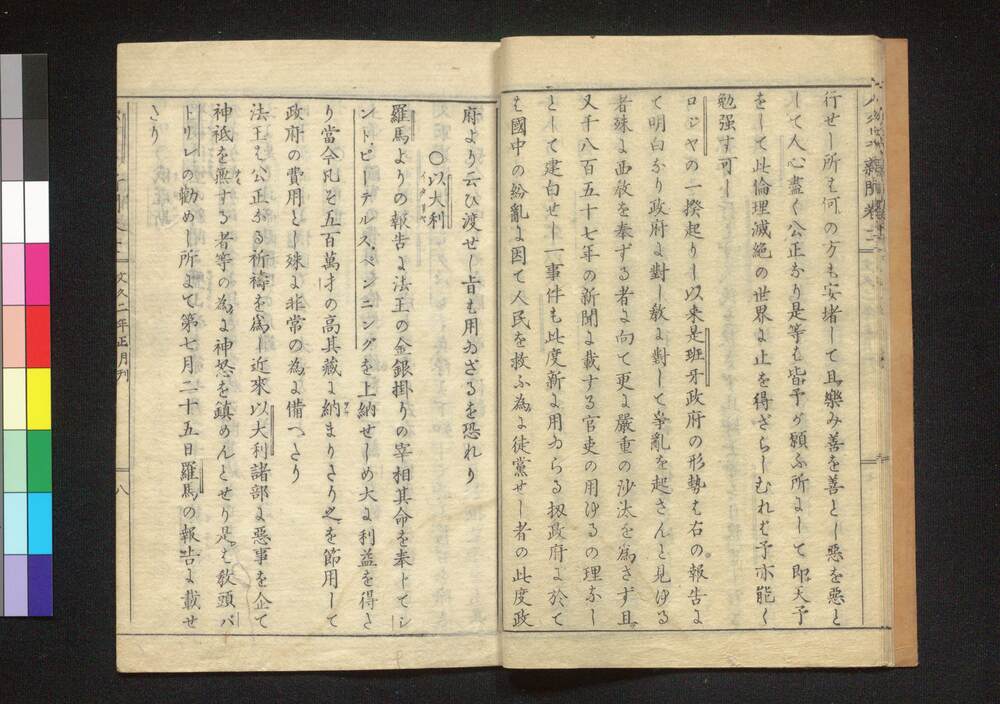 行せし所を何の方も安堵して且樂み善を善とし惡を惡と
して人心盡く公正なり是等も皆予が願ふ所よして即天予
をして此倫理滅絶の世界よ止を得ざらしむれむ予亦能く
勉强す可し
ロジヤの一揆起りし以来是班牙政府の形勢も右の報告よ
て明白なり政府よ對し敎よ對して争亂を起さんと見ゆる
者殊よ西敎を奉ずる者よ向て更よ嚴重の沙汰を爲さず且
又千八百五十七年の新聞よ載する官吏の用ゆるの理なし
として建白せし一事件も此度新よ用ゐらる扨政府よ於て
も國中の紛亂よ因て人民を救ふ為よ徒黨せし者の此度政
府より云ひ渡せし旨も用ゐざるを恐れり
○以大利
イタリヤ
羅馬よりの報告よ法王の金銀掛りの宰相其命を奉じてシ
ントピーテルス、ペンニングを上納せしめ大よ利益を得さ
り當今凡そ五百萬才の高其藏よ納まりさり之を節用して
政府の費用と殊よ非常の為よ備へさり
法王も公正なる祈禱を爲し近來以大利諸部よ惡事を企て
神祇を無する者等の為よ神怒を鎮めんとせり是も敎頭パ
トリレの勸めし所よて第七月二十五日羅馬の報告よ載せ
さり
文久二年正月刊
八